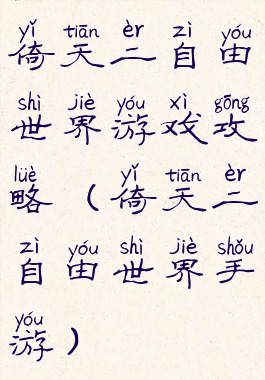 yǐ tiān èr zì yóu
倚天二自由
shì jiè yóu xì gōng
世界游戏攻
lüè yǐ tiān èr
略（倚天二
zì yóu shì jiè shǒu
自由世界手
yóu
游）